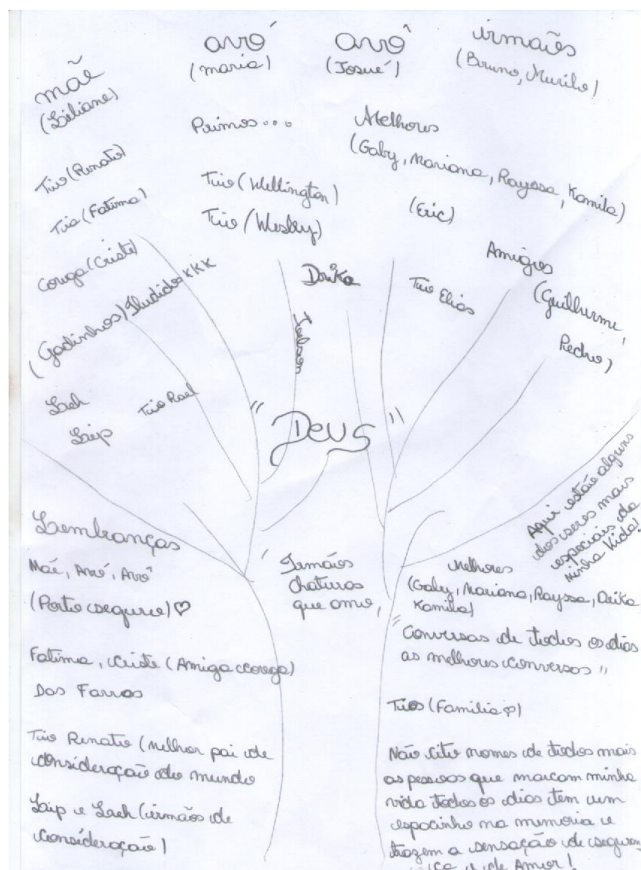 avó
(maria)
avô
(Josué)
irmãos
(Bruno, Murilo)
mãe
(Liliane)
Primos...
Melhores
(Gaby, Mariana, Rayssa, Kamila)
(Eric)
Tio (Renato)
Tia (Fatima)
Tio (Wellington)
Tio (Wesley)
Coroga (Criste)
(Gadinhos) Iludidos KKK
Drika
Tio Elias
Amigos
(Guilherme,
Pedro)
Tio Rael
"Deus"
Aqui estão alguns
dos seres mais
especiais da
minha Vida!
Lembranças
Mãe, Avó, Avô
(Porto seguro) ♡
Fatima, Criste (Amiga coroga)
Das Farras
Tio Renato (melhor pai de
consideração do mundo
(irmãos de
consideração)
Irmãos
chaturas
que amo,
Melhores
(Gaby, Mariana, Rayssa, Drika
Kamila)
"Conversas de todos os dias
as melhores conversas"
Tios (Familia♡)
Não cito nomes de todos mais
as pessoas que marcam minha
vida todos os dias tem um
espacinho na memoria e
trazem a sensação de seguran
ça e de Amor!